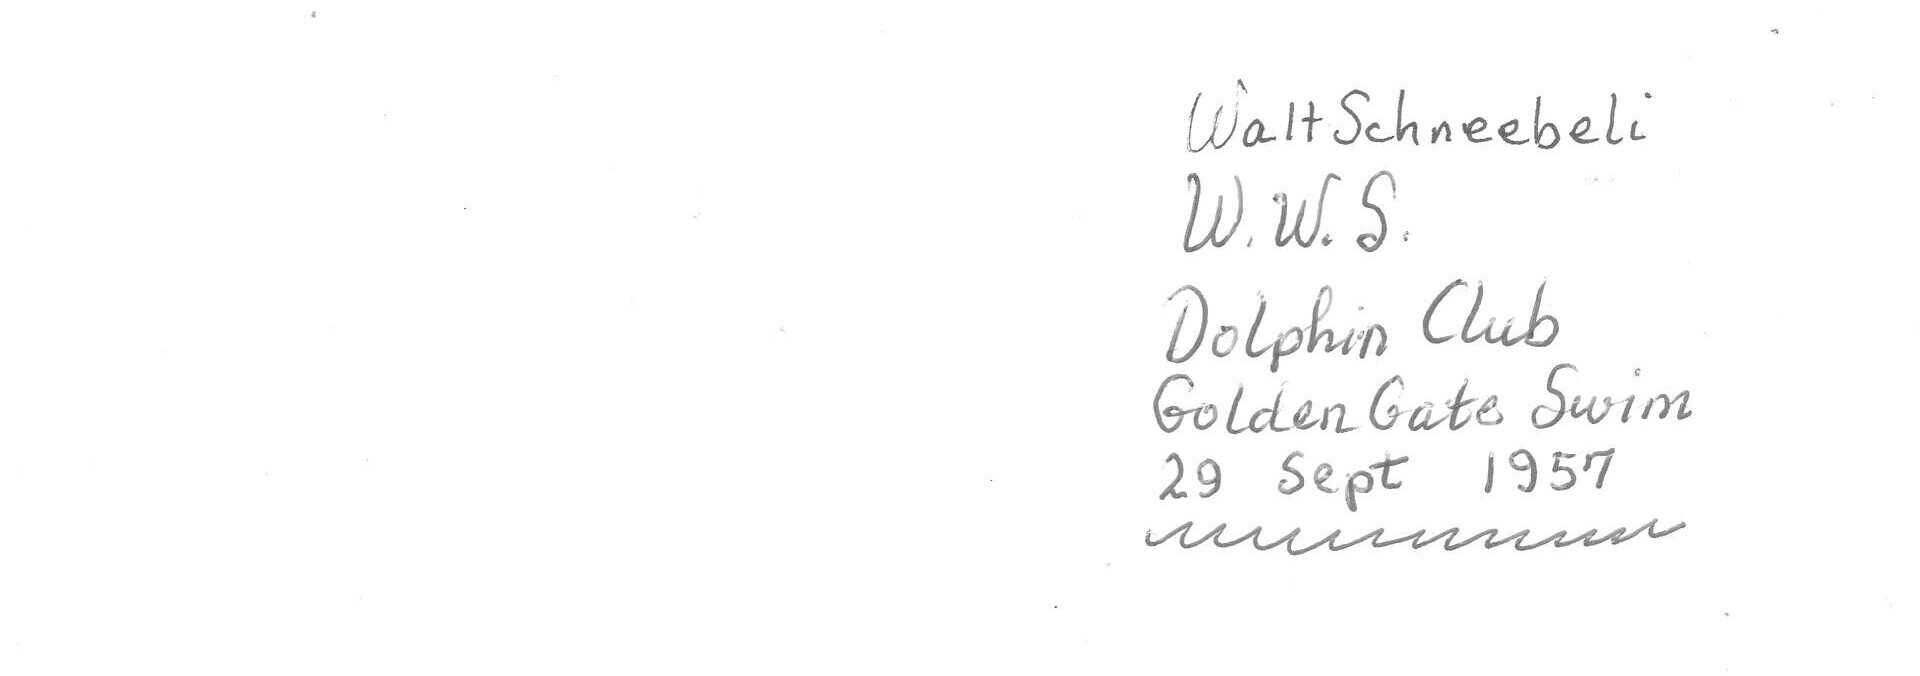 Walt Schneebeli
W. W. S.
Dolphin Club
Golden Gate Swim
29 Sept 1957